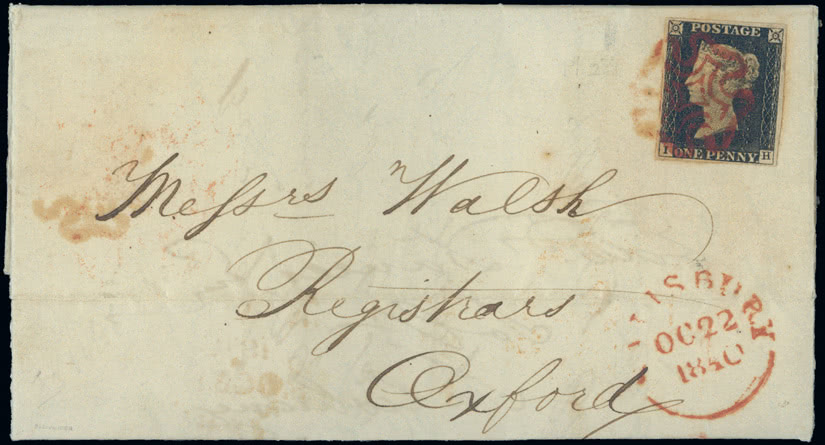 POSTAGE
I H
ONE PENNY
Messrs Walsh
Registrars
Oxford
OC 22
1840